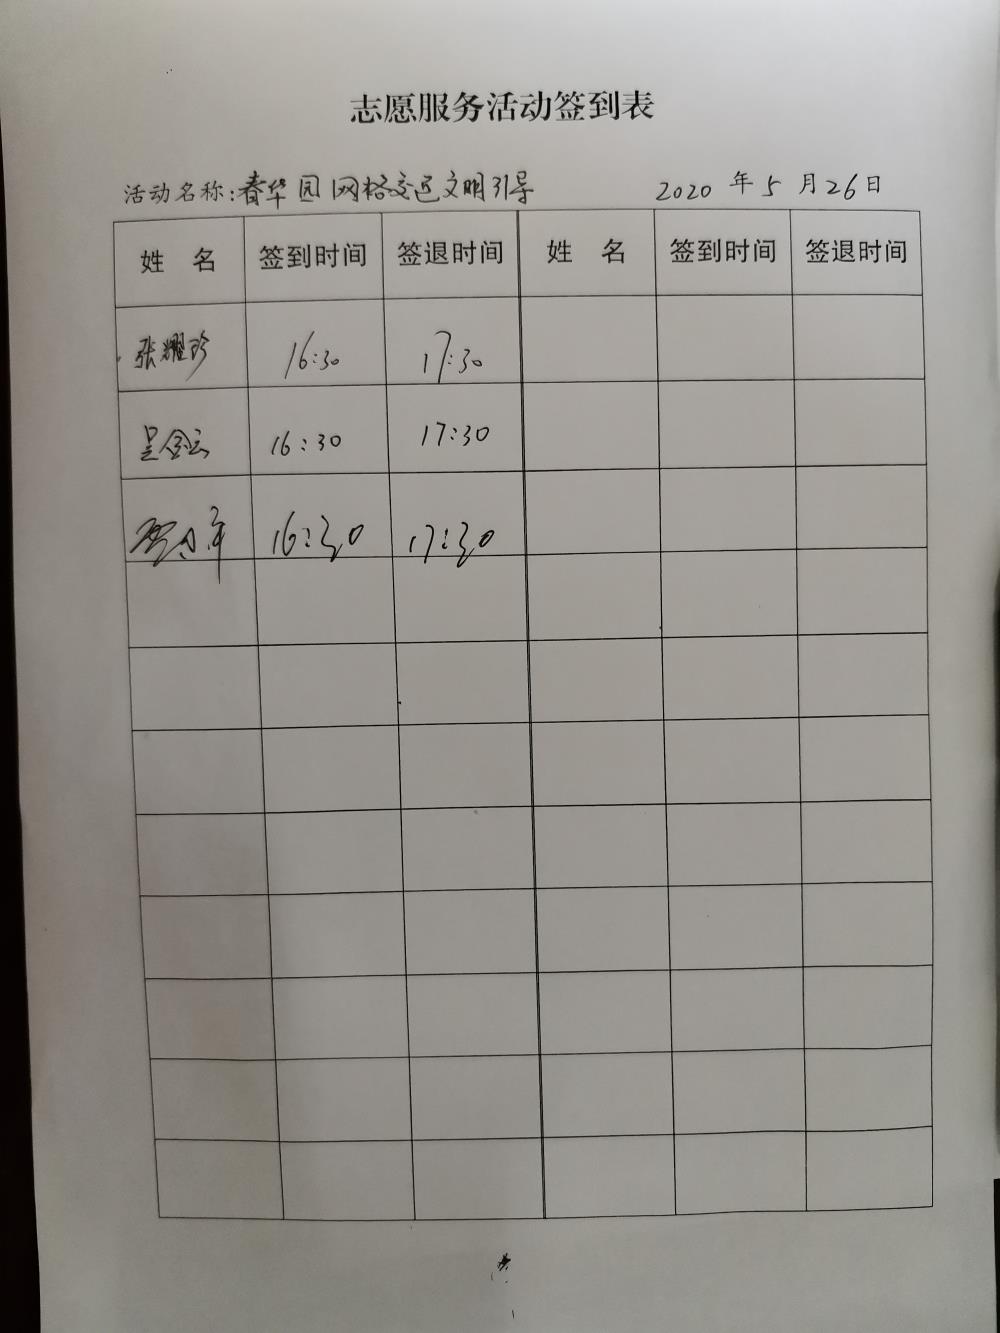 志愿服务活动签到表
活动名称:春华园网格交通文明引导 2020年5月26日
姓 名 签到时间 签退时间 姓 名 签到时间 签退时间
张耀珍 16:30 17:30
吴金云 16:30 17:30
16:30 17:30